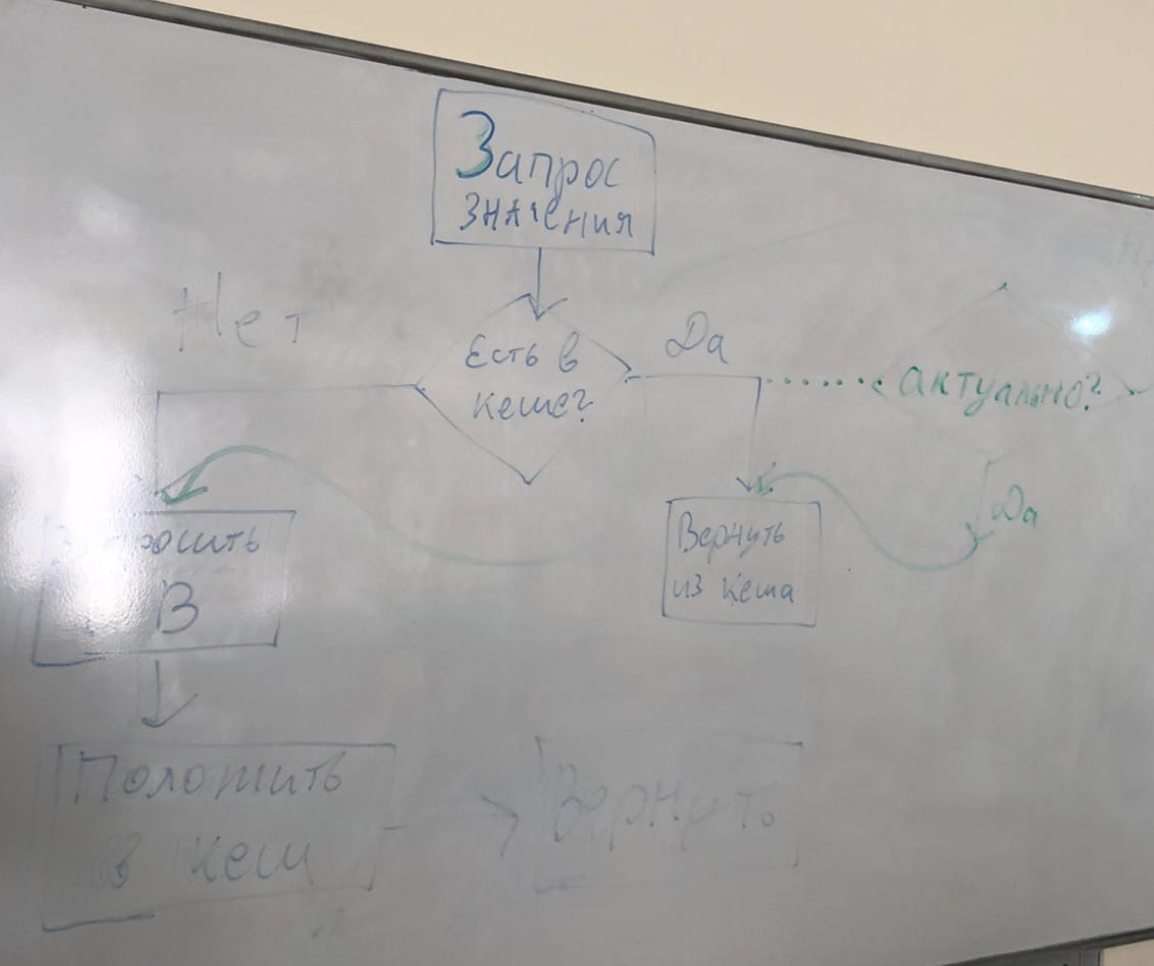 Запрос
значения
Нет
Есть в
кеше?
Да
актуально?
Да
Вернуть
из кеша
Положить
в кеш
Вернуть